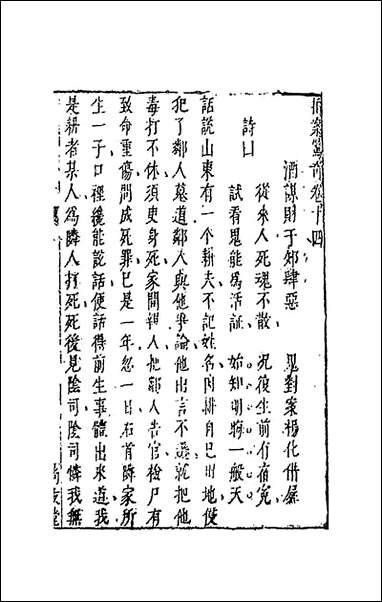 拍案驚奇卷十四
酒謀財于郊肆惡　鬼對案楊化借屍
詩曰
從來人死魂不散　況復生前有宿冤
試看鬼能為活証　始知明晦一般天
話說山東有一个耕夫不記姓名因耕自己田地侵
犯了鄰人墓道鄰人與他爭論他出言不遜就把他
毒打不休須臾身死家間親人把鄰人告官檢尸有
致命重傷問成死罪已是一年忽一日右首鄰家所
生一子口裡纔能說話便話得前生事體出來道我
是耕者某人為隣人打死死後見陰司陰司憐我無
尚友堂